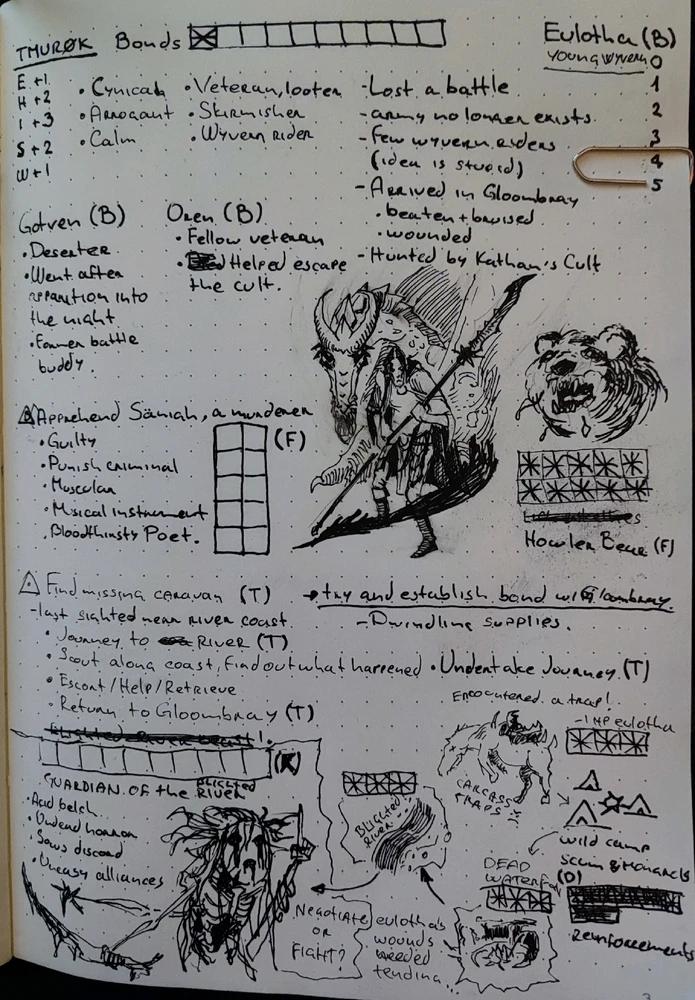 THURØK Bonds
Eulotha (B)
YOUNG WYVERN
0
1
2
3
4
5
E +1
H +2
I +3
S +2
W +1
• Cynical
• Arrogant
• Calm
• Veteran, looter
• Skirmisher
• Wyvern rider
- Lost a battle
- army no longer exists.
- Few wyvern riders
(idea is stupid)
- Arrived in Gloombray
• beaten + bruised
• wounded
- Hunted by Kathan's Cult
Gotven (B)
• Deserter
• Went after
apparition into
the night
• Former battle
buddy.
Oren (B)
• Fellow veteran
• Helped escape
the cult.
Apprehend Säniah, a murderer
• Guilty
• Punish criminal
• Muscular
• Musical instrument
• Bloodthirsty Poet.
(F)
Howler Bear (F)
Find missing caravan (T)
- last sighted near river coast.
• Journey to River (T)
• Scout along coast, find out what happened
• Escort/Help/Retrieve
• Return to Gloombray (T)
→ try and establish bond with Gloombray.
- Dwindling supplies.
• Undertake Journey (T)
Encountered a trap!
-1 HP eulotha
CARCASS
TRAPS
wild camp
Scum & Mongrels
(D)
Reinforcements
DEAD
WATERFALL
eulotha's
wounds
needed
tending...
BLIGHTED
RIVER
Negotiate
OR
FIGHT?
Blighted River beast!
GUARDIAN OF the BLIGHTED
RIVER
• Acid belch
• Undead horror
• Sows discord
• Uneasy alliances